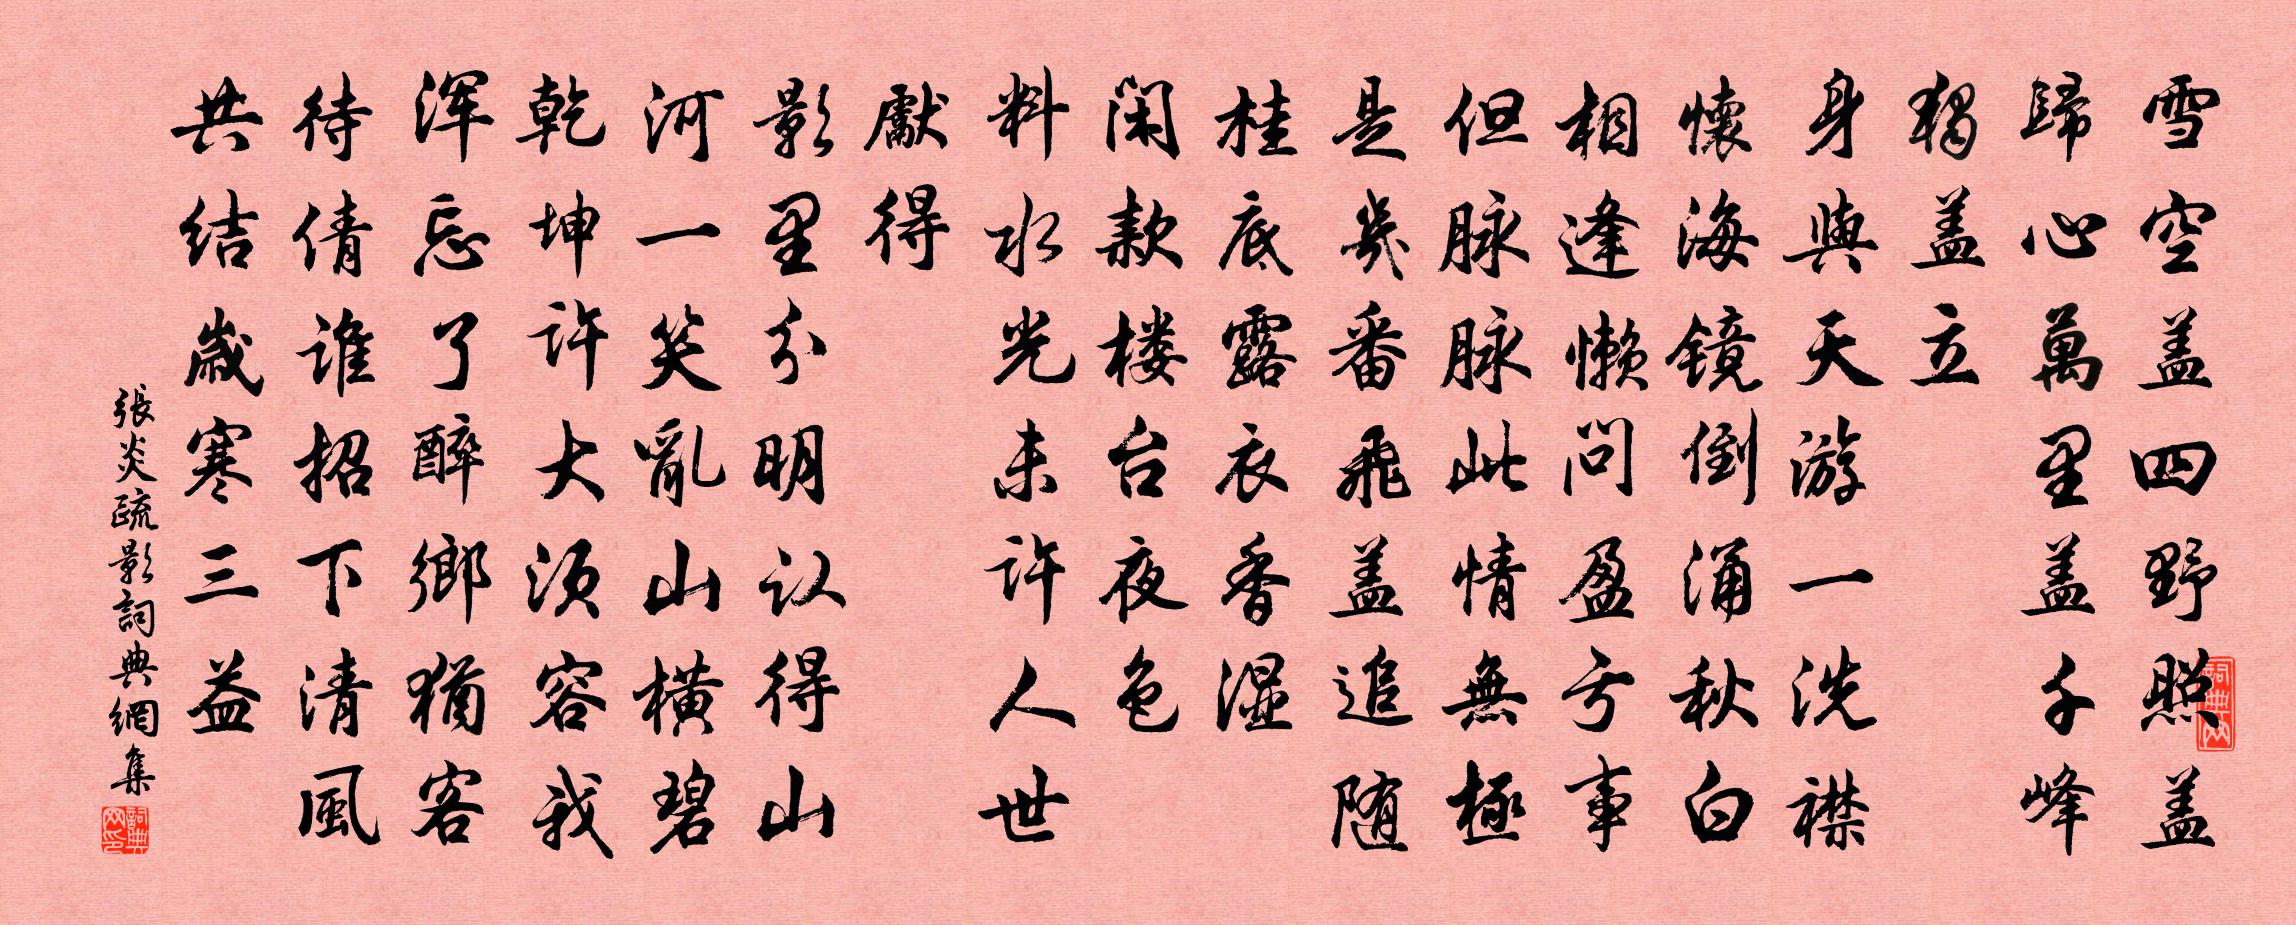 雪空盖四野照盖
歸心萬里盖千峰
獨盖立
身與天游一洗襟
懷海镜倒涌秋白
相逢懒问盈亏事
但脉脉此情無極
是幾番飛盖追随
桂底露衣香湿
闲款楼台夜色
料水光未许人世
獻得
影里分明认得山
河一笑亂山横碧
乾坤许大须容我
浑忘了醉鄉猶客
待倩谁招下清風
共结歲寒三益
張炎疏影詞典網集
詞典网
詞典网印